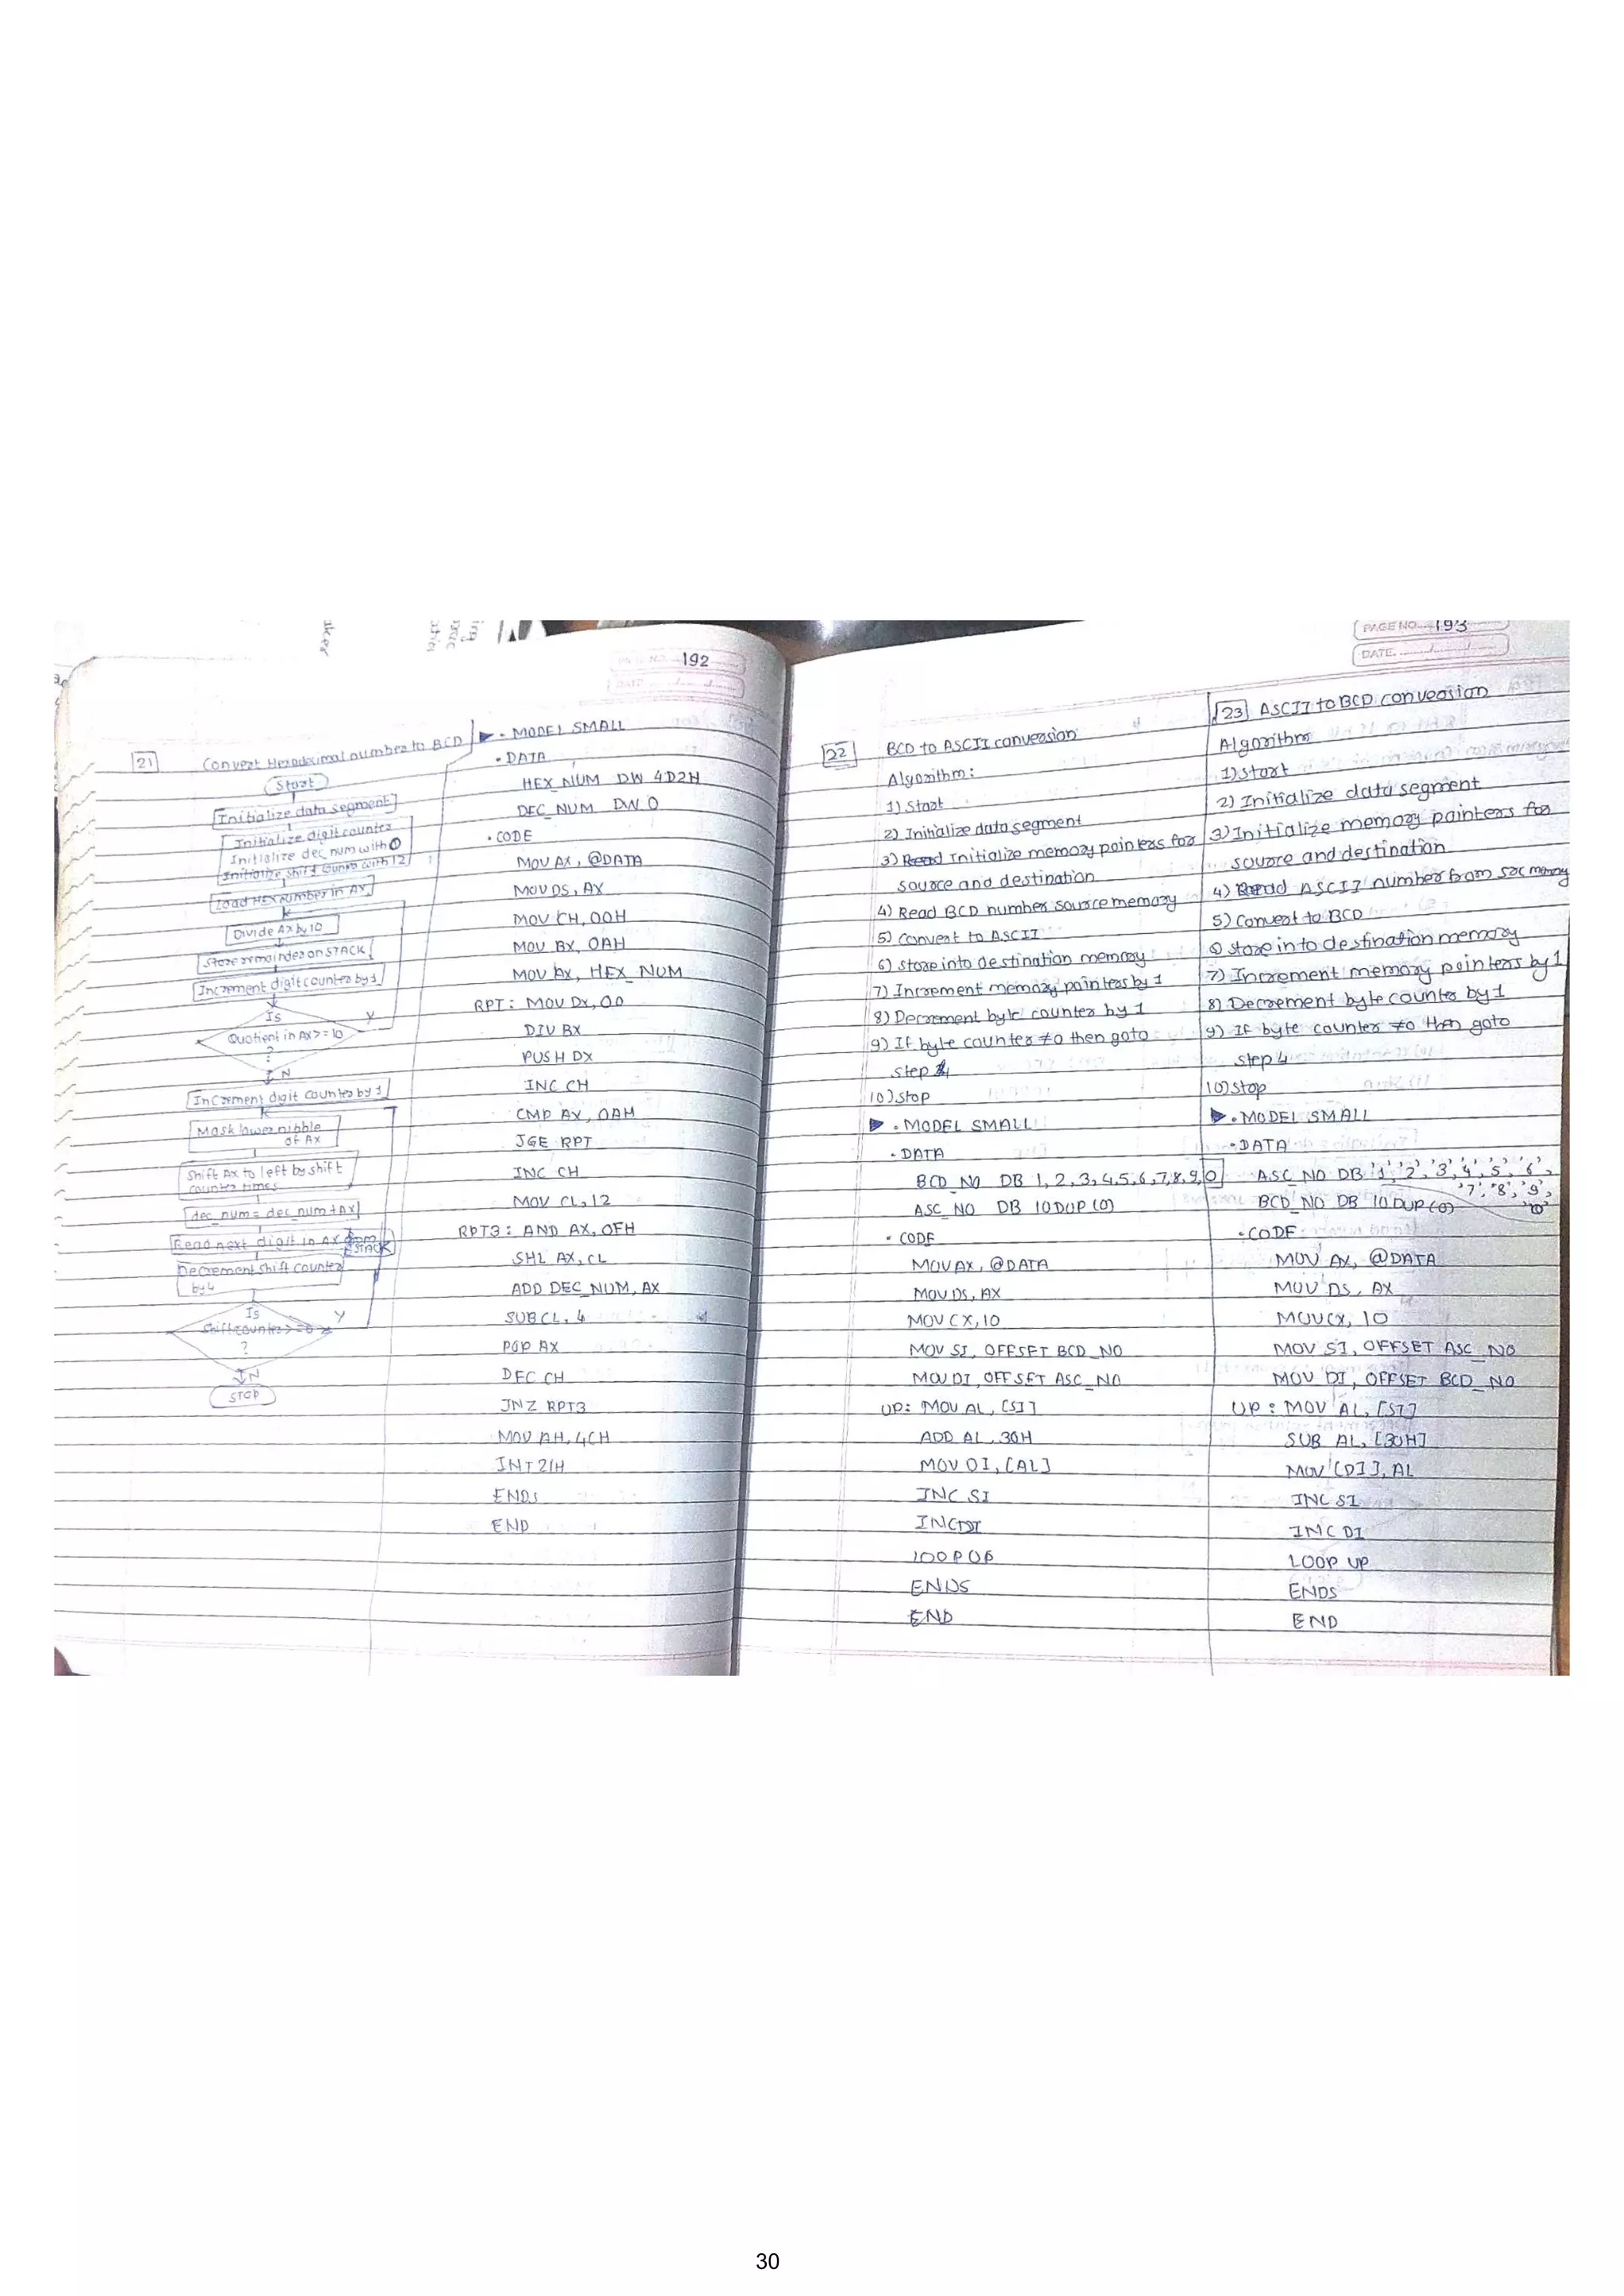 192
21 Convert Hexadecimal number to BCD
Start
Initialize data segment
Initialize digit counter
Initialize dec_num with 0
Initialize shift counter with 12
Load HEX number in AX
Divide AX by 10
Store remainder on STACK
Increment digit counter by 1
Is
Quotient in AX >= 10
?
Y
N
Increment digit counter by 1
Mask lower nibble
of AX
Shift AX to left by shift
counter times
dec_num = dec_num + AX
Read next digit in AX from
STACK
Decrement shift counter
by 4
Is
Shift counter >= 0
?
Y
N
STOP
.MODEL SMALL
.DATA
HEX_NUM DW 4D2H
DEC_NUM DW 0
.CODE
MOV AX, @DATA
MOV DS, AX
MOV CH, 00H
MOV BX, 0AH
MOV AX, HEX_NUM
RPT: MOV DX, 00
DIV BX
PUSH DX
INC CH
CMP AX, 0AH
JGE RPT
INC CH
MOV CL, 12
RPT3: AND AX, 0FH
SHL AX, CL
ADD DEC_NUM, AX
SUB CL, 4
POP AX
DEC CH
JNZ RPT3
MOV AH, 4CH
INT 21H
ENDS
END
PAGE NO. 193
DATE.
22 BCD to ASCII conversion
Algorithm:
1) Start
2) Initialize data segment
3) Initialize memory pointers for
source and destination
4) Read BCD number source memory
5) Convert to ASCII
6) store into destination memory
7) Increment memory pointers by 1
8) Decrement byte counter by 1
9) If byte counter ≠0 then goto
step 4
10) stop
.MODEL SMALL
.DATA
BCD_NO DB 1,2,3,4,5,6,7,8,9,0
ASC_NO DB 10DUP(0)
.CODE
MOV AX, @DATA
MOV DS, AX
MOV CX, 10
MOV SI, OFFSET BCD_NO
MOV DI, OFFSET ASC_NO
UP: MOV AL, [SI]
ADD AL, 30H
MOV DI, [AL]
INC SI
INC DI
LOOP UP
ENDS
END
23 ASCII to BCD conversion
Algorithm
1) Start
2) Initialize data segment
3) Initialize memory pointers for
source and destination
4) Read ASCII number from src memory
5) Convert to BCD
6) store into destination memory
7) Increment memory pointers by 1
8) Decrement byte counter by 1
9) If byte counter ≠0 then goto
step 4
10) stop
.MODEL SMALL
.DATA
ASC_NO DB '1','2','3','4','5','6',
'7','8','9',
'0'
BCD_NO DB 10DUP(0)
.CODE
MOV AX, @DATA
MOV DS, AX
MOV CX, 10
MOV SI, OFFSET ASC_NO
MOV DI, OFFSET BCD_NO
UP: MOV AL, [SI]
SUB AL, [30H]
MOV [DI], AL
INC SI
INC DI
LOOP UP
ENDS
END
30